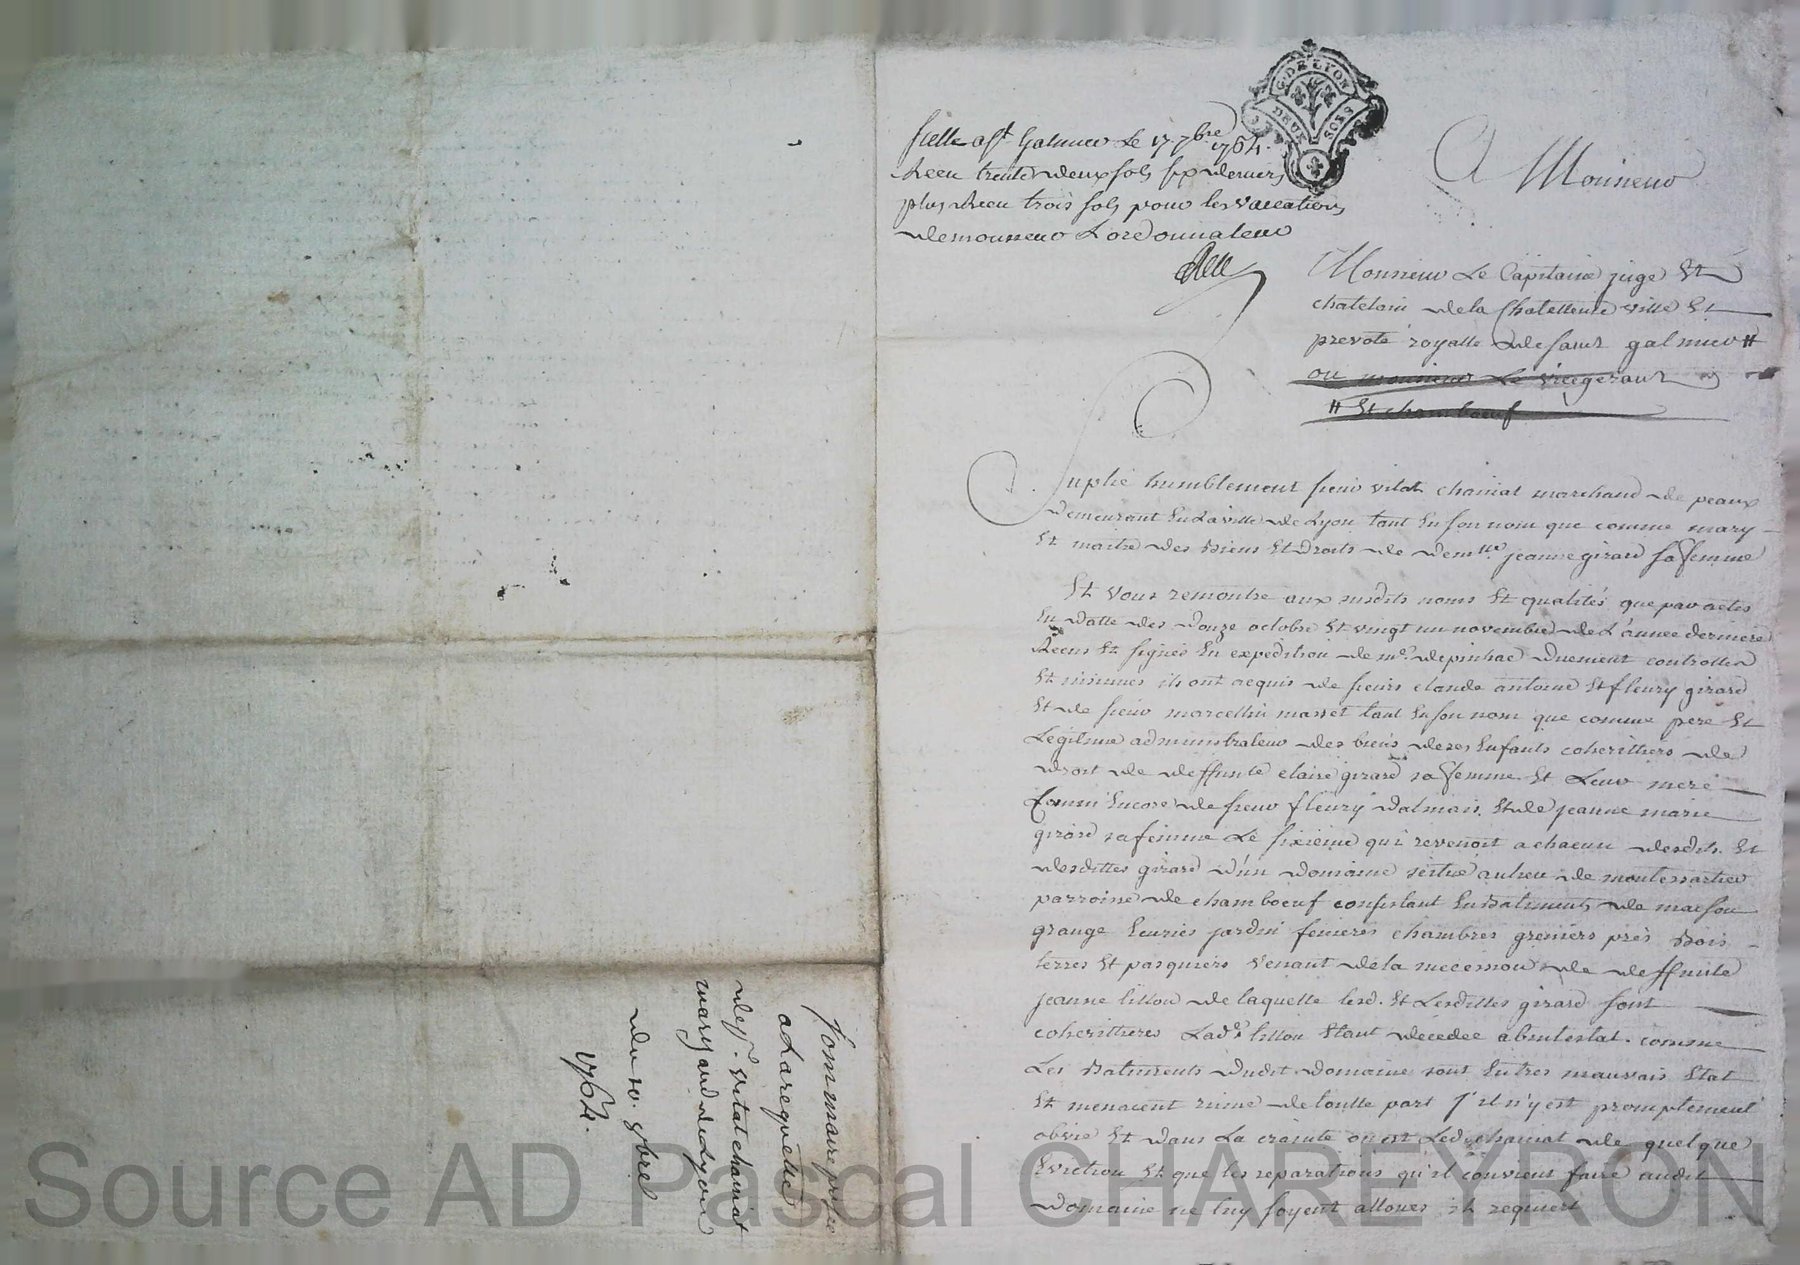 G. DE LYON
DEUX SOLS
scellé a st Galmier Le 17 7bre 1764.
Receu trente deux sols six deniers
plus Receu trois sols pour les vaccations
de monsieur Lordonnateur
A Monsieur
Monsieur Le Capitaine juge Et
chatelain de la Chatellenie ville Et
prevoté royalle de saint galmier #
ou monsieur Le vicegerant
# Et chambœuf
Suplie humblement sieur vital chaniat marchand de peaux
demeurant En La ville de Lyon tant En son nom que comme mary
Et maitre des Biens Et Droits de demlle. jeanne girard sa femme
Et vous remontre aux susdits noms Et qualités que par actes
En datte des douze octobre Et vingt un novembre de L'année derniere
Receus Et signés En expedition de me. depinhac duement controllés
Et insinués ils ont acquis de sieurs claude antoine Et fleury girard
Et de sieur marcellin masset tant En son nom que comme pere Et
Legitime administrateur des biens de ses Enfants coheritiers de
droit de deffunte claire girard sa femme Et Leur mere
Comm'Encore de sieur fleury dalmais Et de jeanne marie
girard sa femme Le sixieme qui revenoit a chacun desdits Et
desdittes girard d'un domaine scitué au lieu de montessartier
parroisse de chambœuf consistant En Batiments de maison
grange Ecuries jardin fenieres chambres greniers prés Bois
terres Et pasquiers venant de la succession de deffunte
jeanne lissou de laquelle lesd. Et Lesdittes girard sont
coheritiers Lade. lissou Etant décédée abintestat. comme
Les Batiments dudit domaine sont En tres mauvais Etat
Et menacent ruine de toutte part s'il n'y est promptement
obvié Et dans La crainte ou est Led. chaniat de quelque
Eviction Et que les reparations qu'il convient faire audit
domaine ne luy soyent alloues il requiert
Sommaire prise
a La requette
de sr. vital chaniat
marchand de Lyon
du 10. 9bre
1764.
Source AD Pascal CHAREYRON